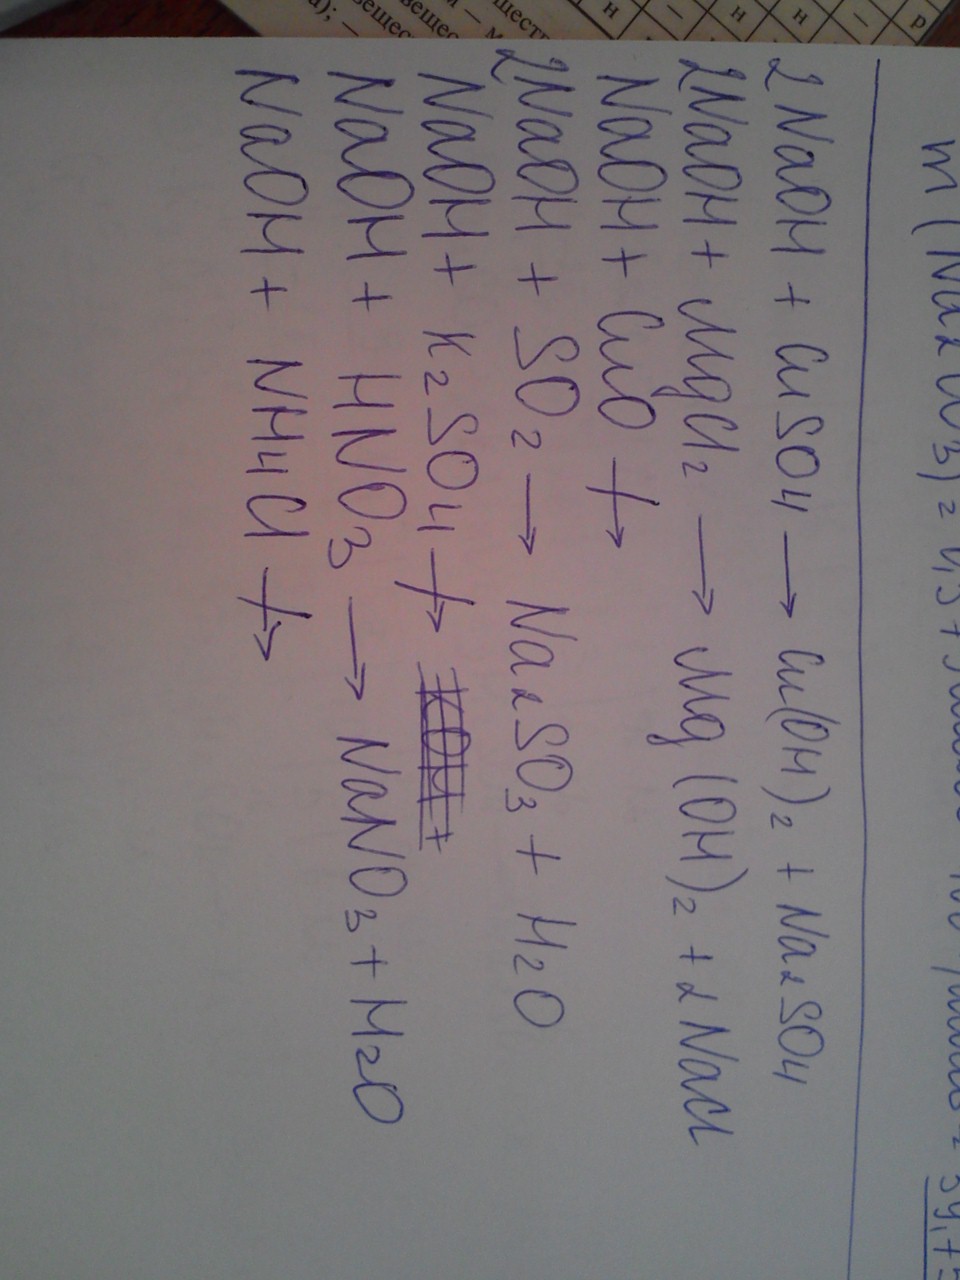 m (Na2CO3) =
2 NaOH + CuSO4 → Cu(OH)2 + Na2SO4
2NaOH + MgCl2 → Mg(OH)2 + 2NaCl
NaOH + CuO ↛
2NaOH + SO2 → Na2SO3 + H2O
NaOH + K2SO4 ↛
NaOH + HNO3 → NaNO3 + H2O
NaOH + NH4Cl ↛
н – н н – р